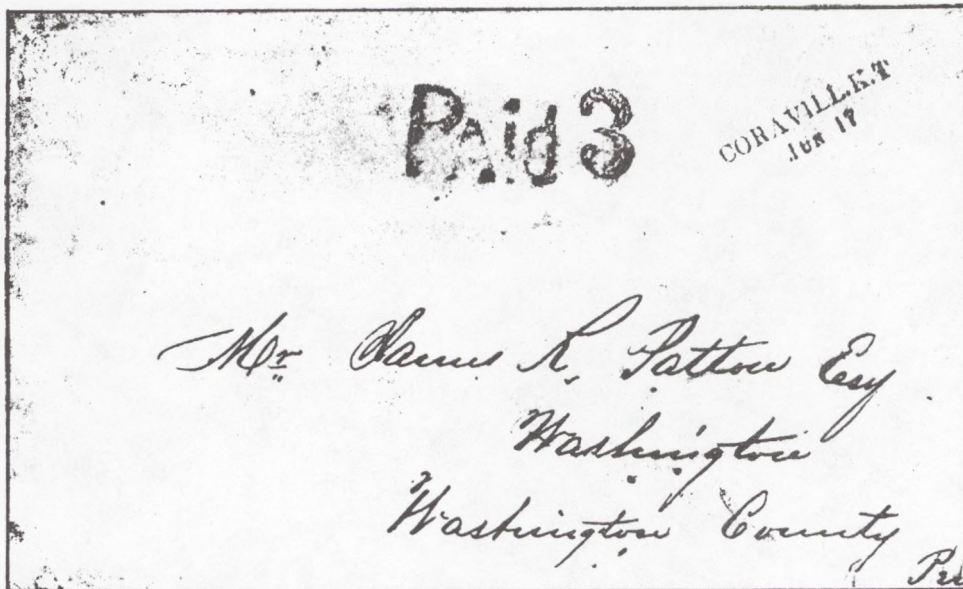 Paid 3
CORAVILL.K.T
JUN 17
Mr James R. Patton Esq
Washington
Washington County